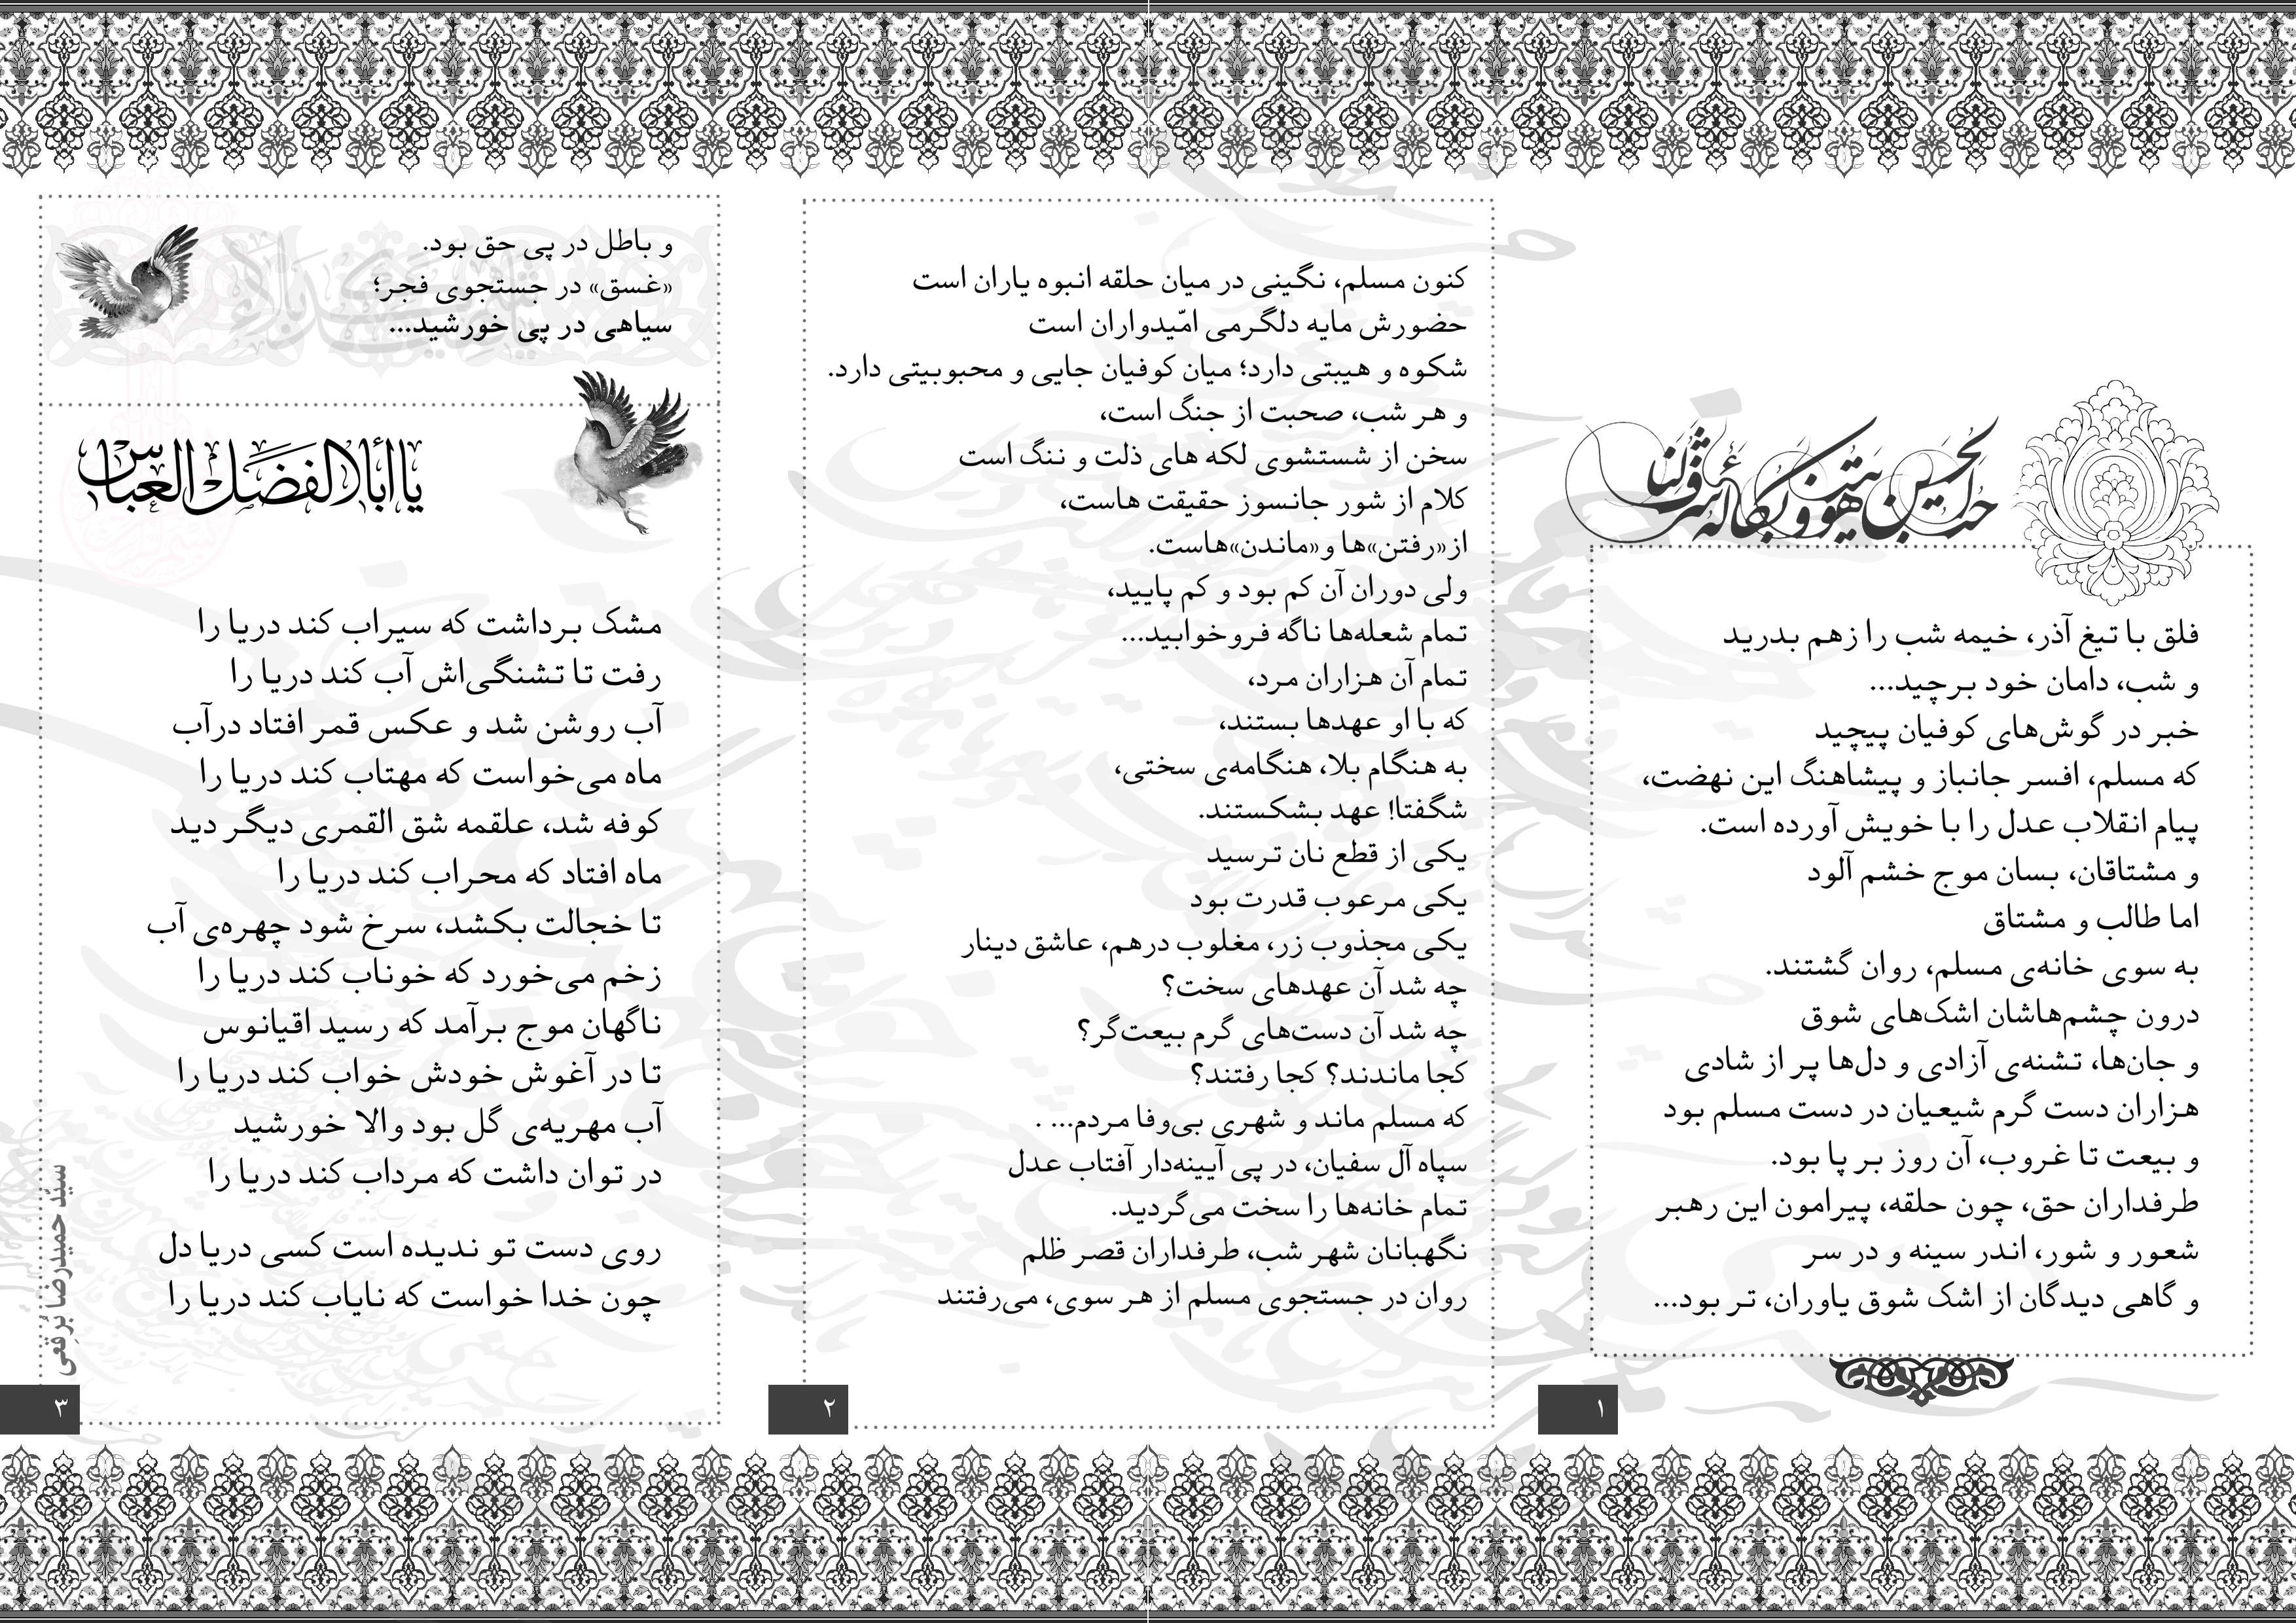 حب الحسین هویتنا و بکائه شرف لنا
فلق با تیغ آذر، خیمه شب را زهم بدرید
و شب، دامان خود برچید...
خبر در گوش‌های کوفیان پیچید
که مسلم، افسر جانباز و پیشاهنگ این نهضت،
پیام انقلاب عدل را با خویش آورده است.
و مشتاقان، بسان موج خشم آلود
اما طالب و مشتاق
به سوی خانه‌ی مسلم، روان گشتند.
درون چشم‌هاشان اشک‌های شوق
و جان‌ها، تشنه‌ی آزادی و دل‌ها پر از شادی
هزاران دست گرم شیعیان در دست مسلم بود
و بیعت تا غروب، آن روز بر پا بود.
طرفداران حق، چون حلقه، پیرامون این رهبر
شعور و شور، اندر سینه و در سر
و گاهی دیدگان از اشک شوق یاوران، تر بود...
۱
کنون مسلم، نگینی در میان حلقه انبوه یاران است
حضورش مایه دلگرمی امّیدواران است
شکوه و هیبتی دارد؛ میان کوفیان جایی و محبوبیتی دارد.
و هر شب، صحبت از جنگ است،
سخن از شستشوی لکه های ذلت و ننگ است
کلام از شور جانسوز حقیقت هاست،
از«رفتن»ها و«ماندن»هاست.
ولی دوران آن کم بود و کم پایید،
تمام شعله‌ها ناگه فروخوابید...
تمام آن هزاران مرد،
که با او عهدها بستند،
به هنگام بلا، هنگامه‌ی سختی،
شگفتا! عهد بشکستند.
یکی از قطع نان ترسید
یکی مرعوب قدرت بود
یکی مجذوب زر، مغلوب درهم، عاشق دینار
چه شد آن عهدهای سخت؟
چه شد آن دست‌های گرم بیعت‌گر؟
کجا ماندند؟ کجا رفتند؟
که مسلم ماند و شهری بی‌وفا مردم... .
سپاه آل سفیان، در پی آیینه‌دار آفتاب عدل
تمام خانه‌ها را سخت می‌گردید.
نگهبانان شهر شب، طرفداران قصر ظلم
روان در جستجوی مسلم از هر سوی، می‌رفتند
۲
و باطل در پی حق بود.
«غسق» در جستجوی فجر؛
سیاهی در پی خورشید...
یا أبا لالفضل العباس
مشک برداشت که سیراب کند دریا را
رفت تا تشنگی‌اش آب کند دریا را
آب روشن شد و عکس قمر افتاد درآب
ماه می‌خواست که مهتاب کند دریا را
کوفه شد، علقمه شق القمری دیگر دید
ماه افتاد که محراب کند دریا را
تا خجالت بکشد، سرخ شود چهره‌ی آب
زخم می‌خورد که خوناب کند دریا را
ناگهان موج برآمد که رسید اقیانوس
تا در آغوش خودش خواب کند دریا را
آب مهریه‌ی گل بود والا خورشید
در توان داشت که مرداب کند دریا را
روی دست تو ندیده است کسی دریا دل
چون خدا خواست که نایاب کند دریا را
سیّد حمیدرضا بُرقِعی
۳